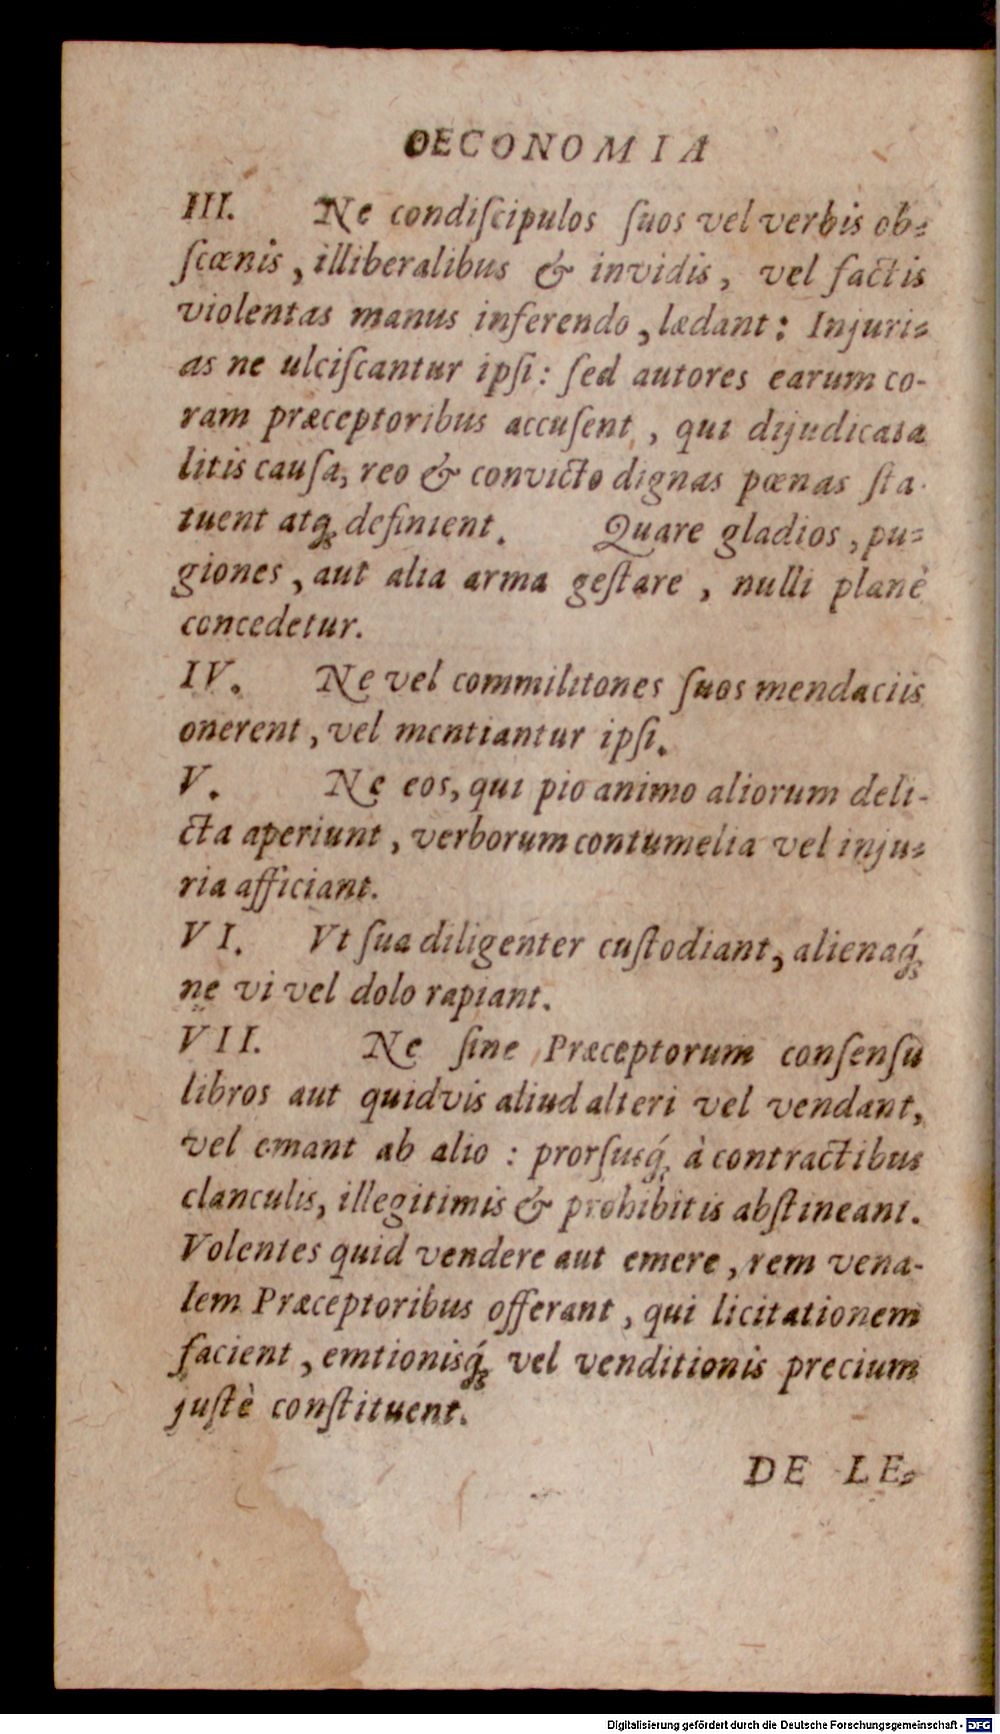 OECONOMIA
III. Ne condiſcipulos ſuos vel verbis ob-
ſcœnis, illiberalibus & invidis, vel factis
violentas manus inferendo, lædant: Injuri-
as ne ulciſcantur ipſi: ſed autores earum co-
ram præceptoribus accuſent, qui dijudicata
litis cauſa, reo & convicto dignas pœnas ſta-
tuent atq; definient. Quare gladios, pu-
giones, aut alia arma geſtare, nulli planè
concedetur.
IV. Ne vel commilitones ſuos mendaciis
onerent, vel mentiantur ipſi.
V. Ne eos, qui pio animo aliorum deli-
cta aperiunt, verborum contumelia vel inju-
ria afficiant.
VI. Vt ſua diligenter cuſtodiant, alienaq́;
ne vi vel dolo rapiant.
VII. Ne ſine Præceptorum conſenſu
libros aut quidvis aliud alteri vel vendant,
vel emant ab alio : prorſusq́; à contractibus
clanculis, illegitimis & prohibitis abſtineant.
Volentes quid vendere aut emere, rem vena-
lem Præceptoribus offerant, qui licitationem
facient, emtionisq́; vel venditionis precium
juſtè conſtituent.
DE LE-
Digitalisierung gefördert durch die Deutsche Forschungsgemeinschaft - DFG